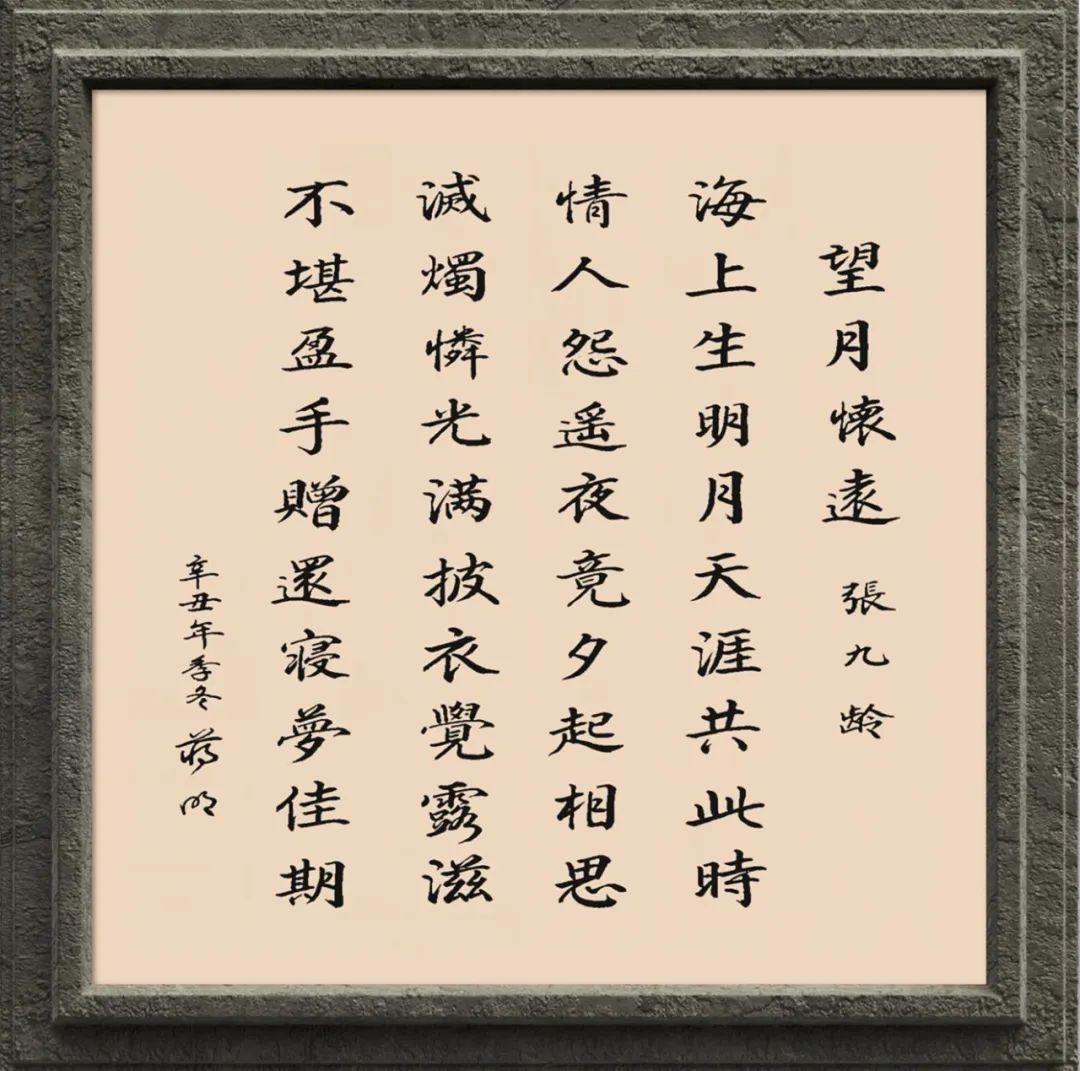 望月懷遠 張九龄
海上生明月天涯共此時
情人怨遥夜竟夕起相思
滅燭憐光满披衣覺露滋
不堪盈手贈還寝夢佳期
辛丑年季冬 蒋明